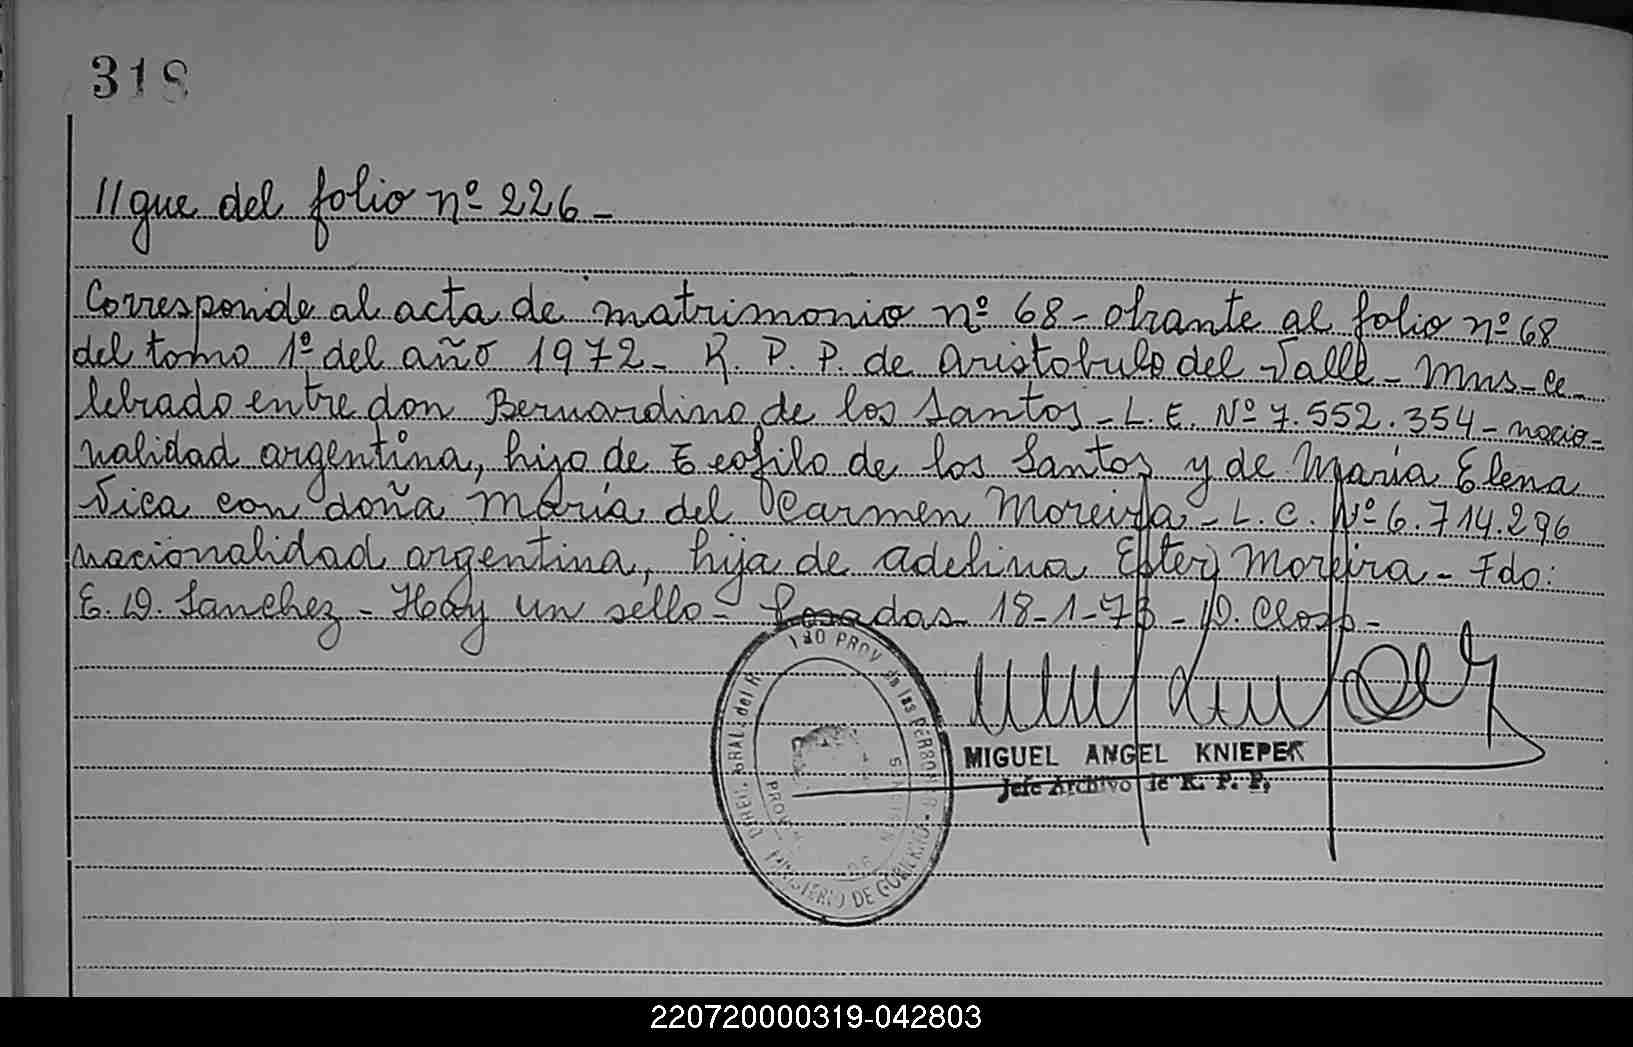 318
//gue del folio nº 226 -
Corresponde al acta de matrimonio nº 68 - obrante al folio nº 68
del tomo 1º del año 1972 - R. P. P. de Aristobulo del Valle - Mns - ce-
lebrado entre don Bernardino de los Santos - L. E. Nº 7.552.354 - nacio-
nalidad argentina, hijo de Teofilo de los Santos y de Maria Elena
Vica con doña Maria del Carmen Moreira - L. C. Nº 6.714.296
nacionalidad argentina, hija de Adelina Ester Moreira - Fdo:
E. D. Sanchez - Hay un sello - Posadas 18-1-73 - D.
MIGUEL ANGEL KNIEPER
Jefe Archivo de R. P. P.
PROV de las PERSON
DIREC. GRAL. del R
MINISTERIO DE GOBIERNO
220720000319-042803